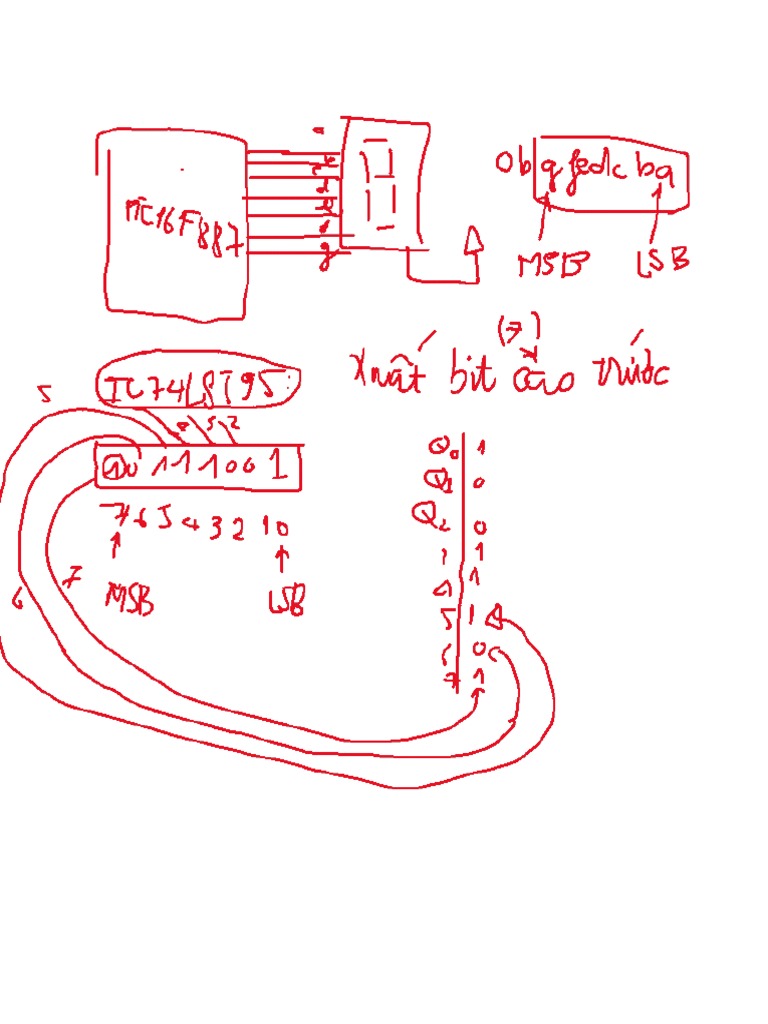 a
b
c
d
e
f
g
PIC16F887
0b gfedcba
MSB LSB
(7)
Xuất bit cao trước
IC74LS595
5 4 3 2
10111001
7 6 5 4 3 2 1 0
MSB LSB
6 7
Q0 1
Q1 0
Q2 0
1
4 1
5 1
6 0
7 1